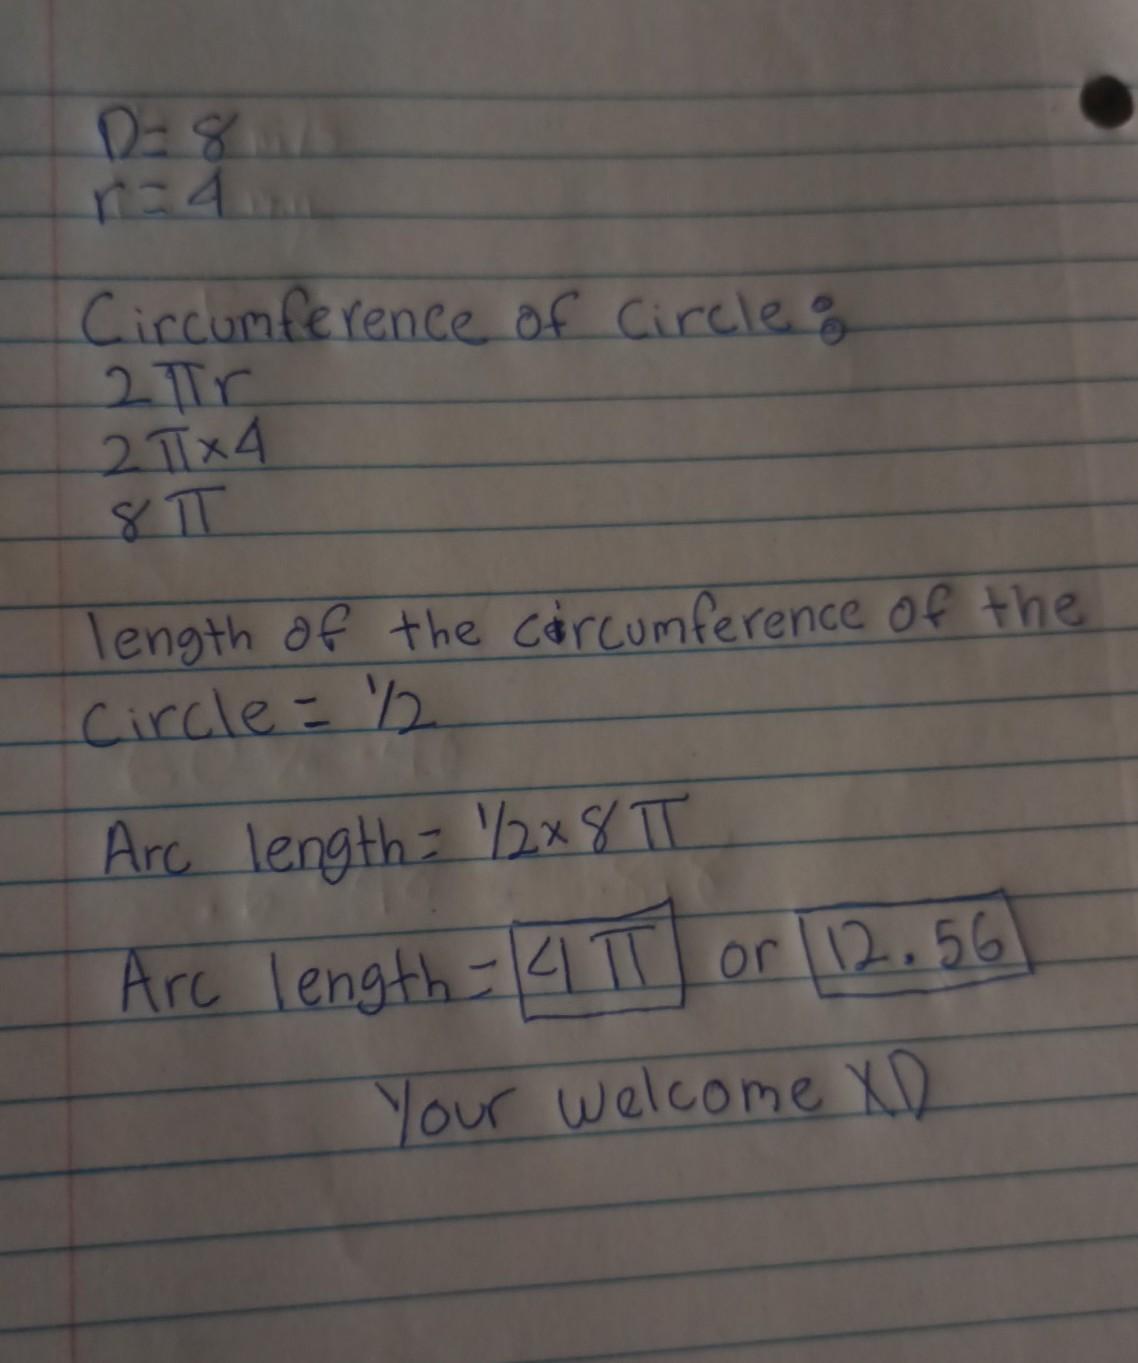 D= 8
r= 4
Circumference of Circle:
2πr
2π×4
8π
length of the circumference of the
Circle = 1/2
Arc length= 1/2×8π
Arc length= 4π or 12.56
Your welcome XD